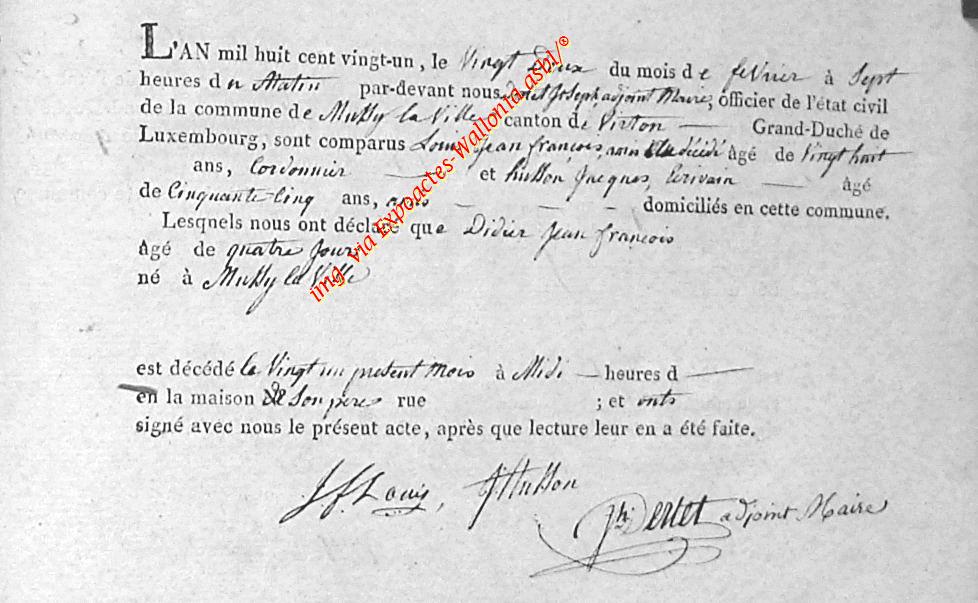 L'AN mil huit cent vingt-un, le Vingt Deux du mois de fevrier à Sept
heures du Matin par-devant nous Joseph, adjoint Maire, officier de l'état civil
de la commune de Mussy la Ville canton de Virton — Grand-Duché de
Luxembourg, sont comparus Louis Jean françois, amis du décédé âgé de Vingt huit
ans, Cordonnier — et husson Jacques, Ecrivain — âgé
de Cinquante Cinq ans, amis — — — domiciliés en cette commune.
Lesquels nous ont déclaré que Didier Jean françois
âgé de quatre Jours
né à Mussy la Ville
est décédé le Vingt un present mois à Midi — heures d —
en la maison de Son pere rue ; et onts
signé avec nous le présent acte, après que lecture leur en a été faite.
J f Louis, J Husson
Jh: Dertet adjoint Maire
img. via Expoactes-Wallonia.asbl/©